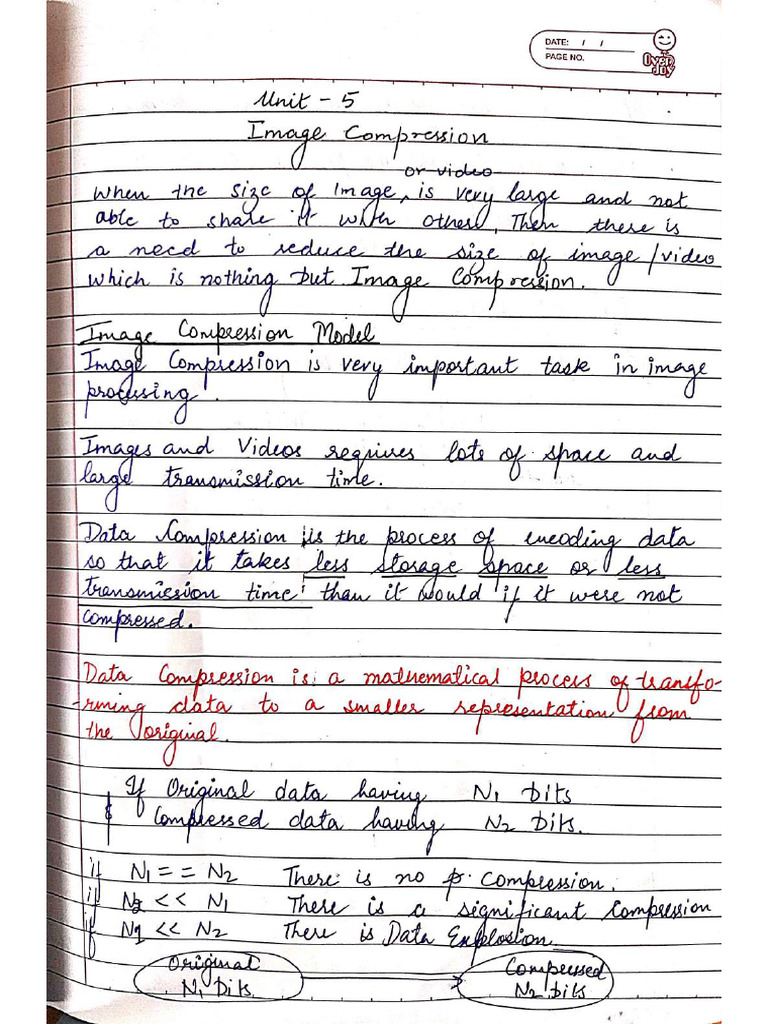 DATE: / /
PAGE NO.
Over Joy
Unit - 5
Image Compression
or video
When the size of Image, is very large and not
able to share it with others, Then there is
a need to reduce the size of image/video
which is nothing but Image Compression.
Image Compression Model
Image Compression is very important task in image
processing.
Images and Videos requires lots of space and
large transmission time.
Data Compression is the process of encoding data
so that it takes less storage space or less
transmission time than it would if it were not
compressed.
Data Compression is a mathematical process of transfo-
-rming data to a smaller representation from
the original.
If Original data having N1 bits
& Compressed data having N2 bits.
if N1 == N2 There is no compression.
if N2 << N1 There is a significant compression
if N1 << N2 There is Data Explosion.
Original Compressed
N1 bits N2 bits